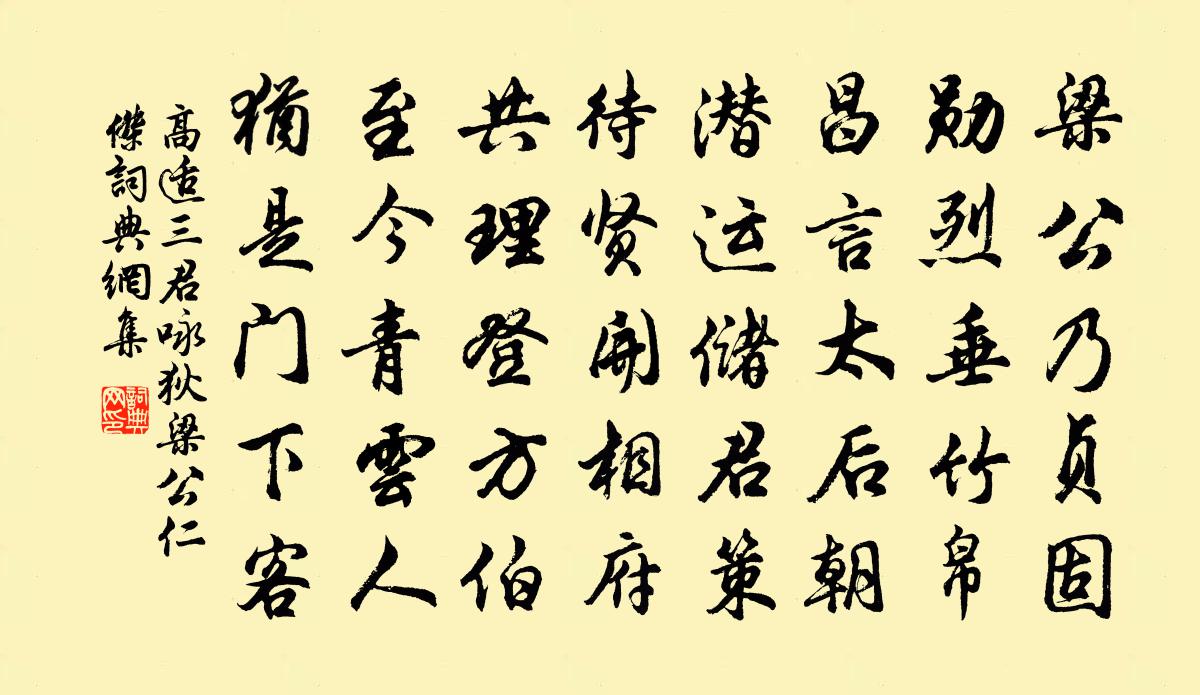 梁公乃贞固
勋烈垂竹帛
昌言太后朝
潜运储君策
待贤開相府
共理登方伯
至今青雲人
猶是门下客
高适三君咏狄梁公仁
傑詞典網集
詞典
网印